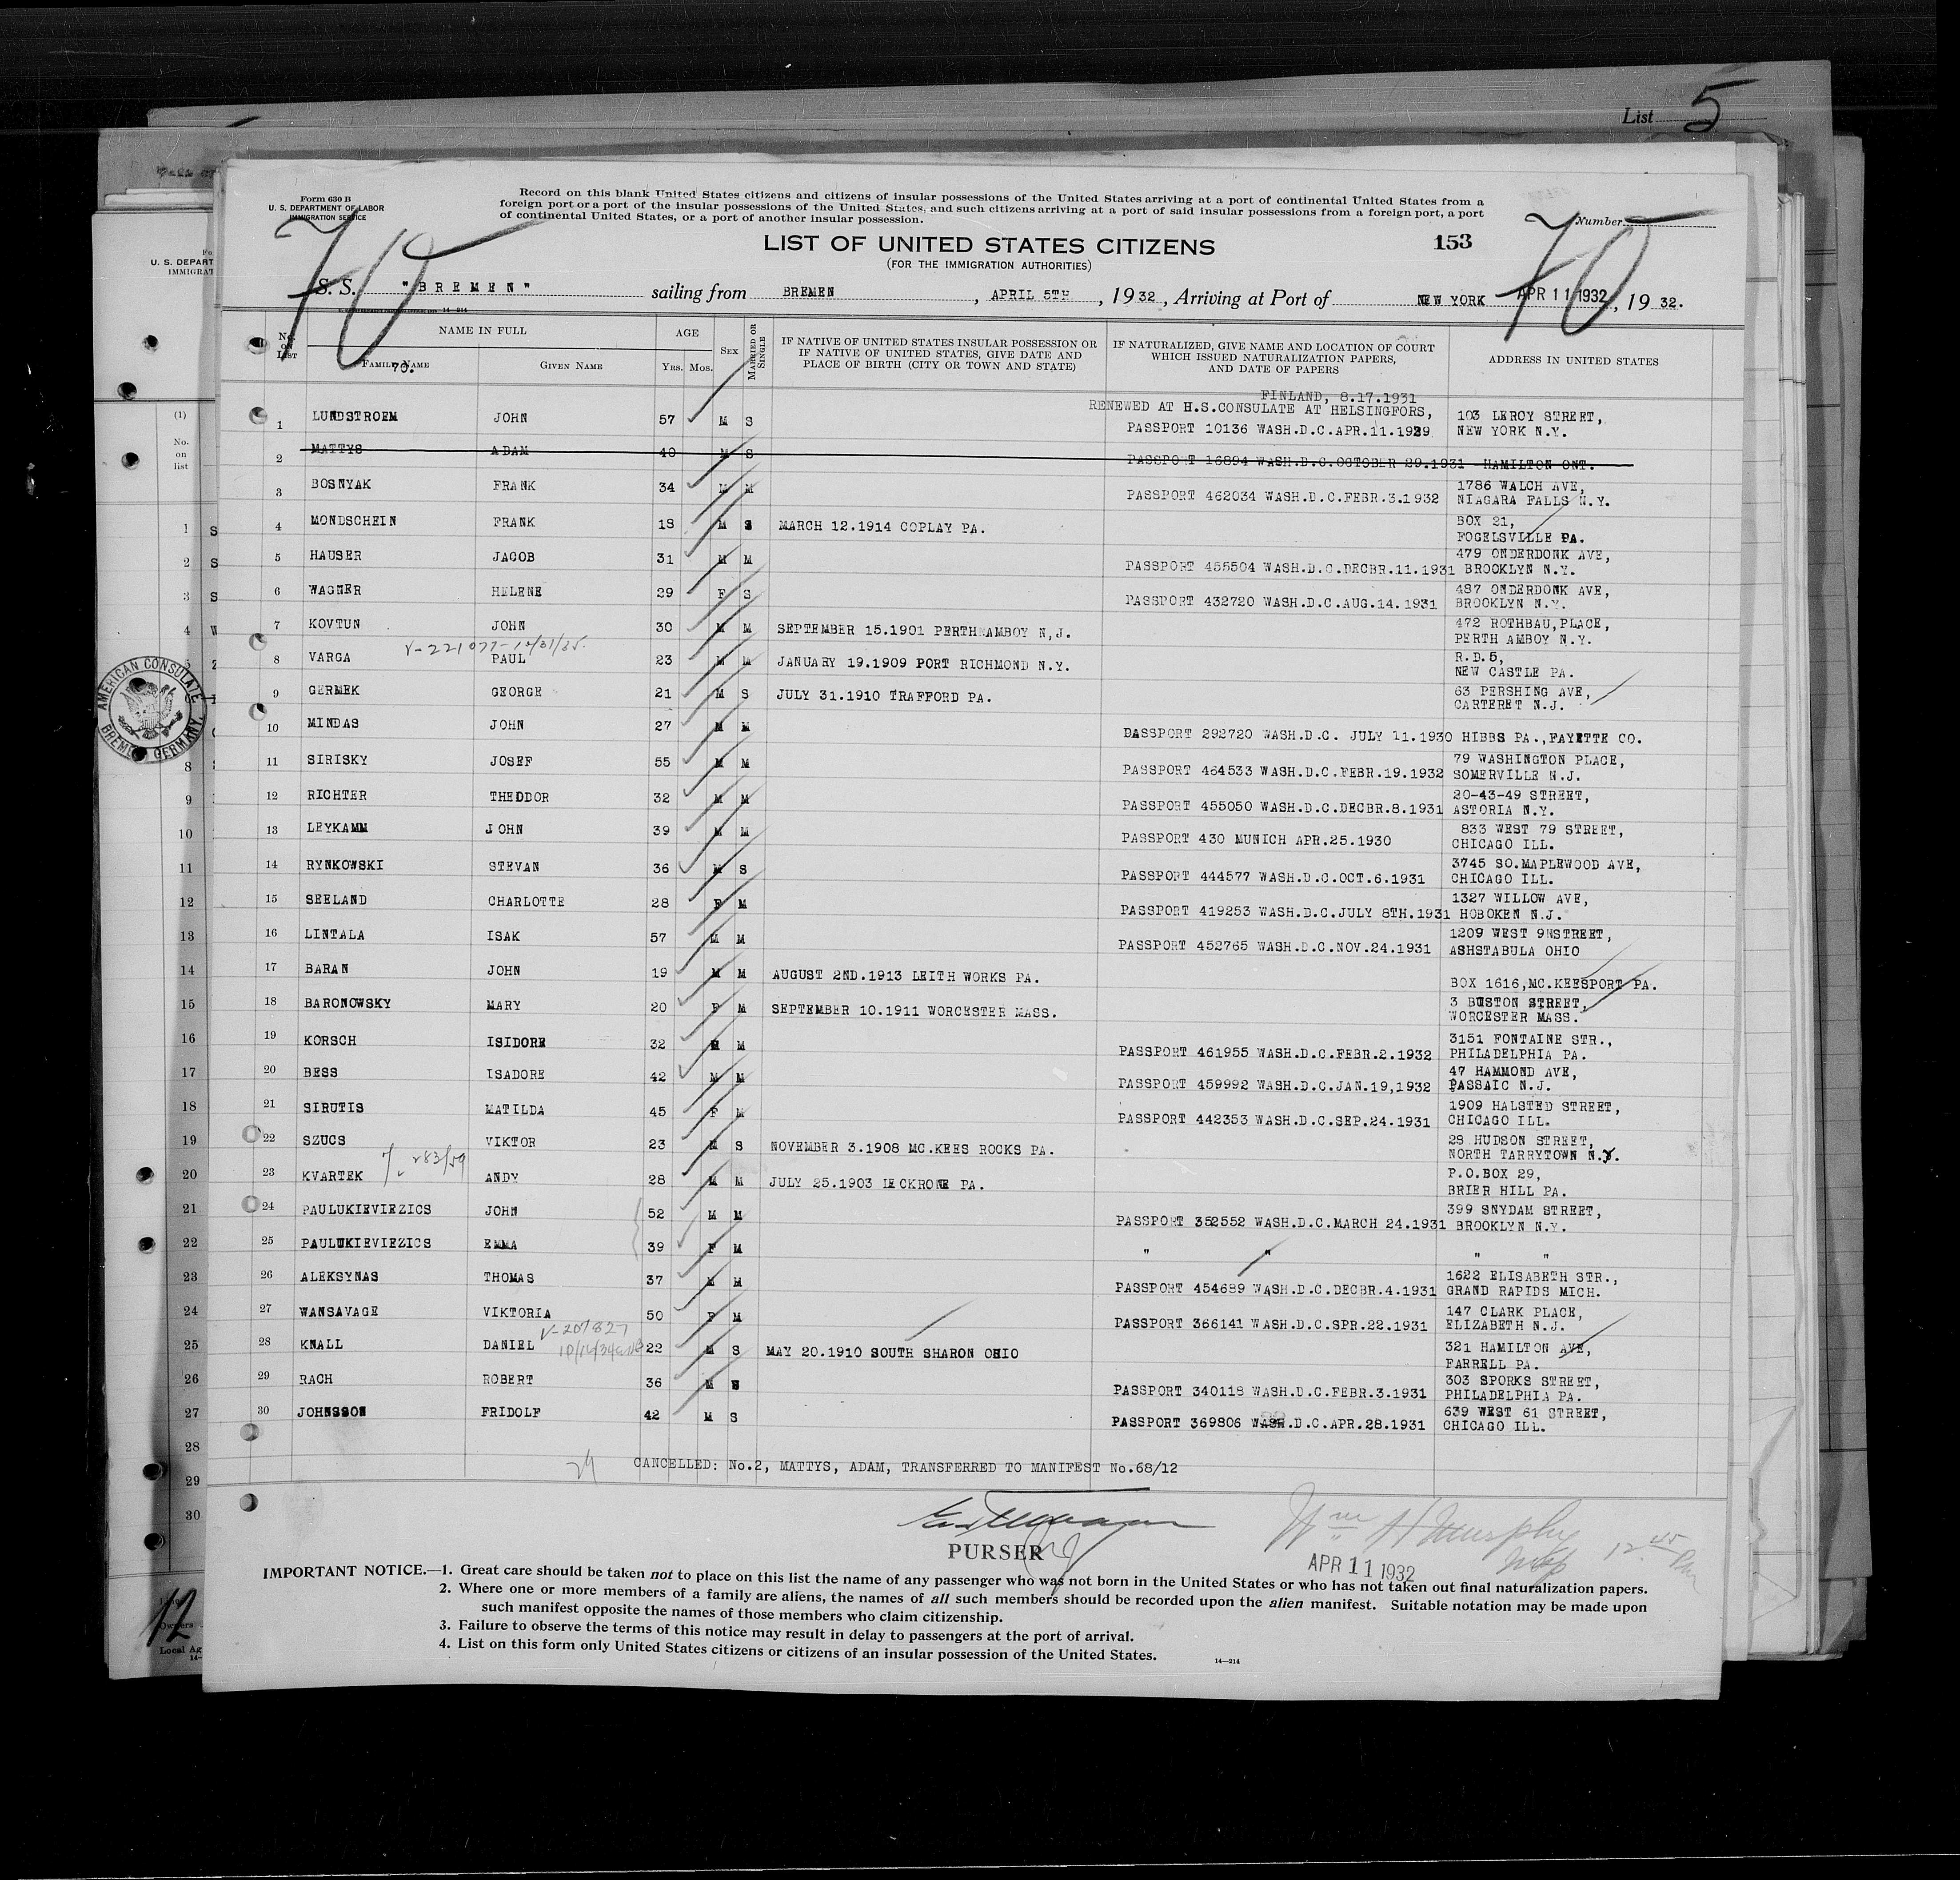 List 5
Form 630 B
U. S. DEPARTMENT OF LABOR
IMMIGRATION SERVICE
Record on this blank United States citizens and citizens of insular possessions of the United States arriving at a port of continental United States from a
foreign port or a port of the insular possessions of the United States, and such citizens arriving at a port of said insular possessions from a foreign port, a port
of continental United States, or a port of another insular possession.
Number
70 70
LIST OF UNITED STATES CITIZENS 153
(FOR THE IMMIGRATION AUTHORITIES)
S. S. "BREMEN" sailing from BREMEN, APRIL 5TH, 1932, Arriving at Port of NEW YORK APR 11 1932, 1932.
14-214
No. on List NAME IN FULL AGE Sex Married or Single IF NATIVE OF UNITED STATES INSULAR POSSESSION OR IF NATIVE OF UNITED STATES, GIVE DATE AND PLACE OF BIRTH (CITY OR TOWN AND STATE) IF NATURALIZED, GIVE NAME AND LOCATION OF COURT WHICH ISSUED NATURALIZATION PAPERS, AND DATE OF PAPERS ADDRESS IN UNITED STATES
Family Name Given Name Yrs. Mos.
70.
FINLAND, 8.17.1931
RENEWED AT H.S.CONSULATE AT HELSINGFORS, 103 LEROY STREET,
1 LUNDSTROEM JOHN 57 M S PASSPORT 10136 WASH.D.C.APR.11.1929 NEW YORK N.Y.
2 MATTYS ADAM 40 M S PASSPORT 16894 WASH.D.C.OCTOBER 29.1931 HAMILTON ONT.
1786 WALCH AVE,
3 BOSNYAK FRANK 34 M M PASSPORT 462034 WASH.D.C.FEBR.3.1932 NIAGARA FALLS N.Y.
4 MONDSCHEIN FRANK 18 M S MARCH 12.1914 COPLAY PA. BOX 21,
FOGELSVILLE PA.
479 ONDERDONK AVE,
5 HAUSER JACOB 31 M M PASSPORT 455504 WASH.D.C.DECBR.11.1931 BROOKLYN N.Y.
487 ONDERDONK AVE,
6 WAGNER HELENE 29 F S PASSPORT 432720 WASH.D.C.AUG.14.1931 BROOKLYN N.Y.
7 KOVTUN JOHN 30 M M SEPTEMBER 15.1901 PERTH AMBOY N,J. 472 ROTHBAU,PLACE,
PERTH AMBOY N.Y.
V-221077-10/31/35.
8 VARGA PAUL 23 M M JANUARY 19.1909 PORT RICHMOND N.Y. R.D.5,
NEW CASTLE PA.
9 GERMEK GEORGE 21 M S JULY 31.1910 TRAFFORD PA. 63 PERSHING AVE,
CARTERET N.J.
10 MINDAS JOHN 27 M M PASSPORT 292720 WASH.D.C. JULY 11.1930 HIBBS PA.,FAYETTE CO.
79 WASHINGTON PLACE,
11 SIRISKY JOSEF 55 M M PASSPORT 464533 WASH.D.C.FEBR.19.1932 SOMERVILLE N.J.
20-43-49 STREET,
12 RICHTER THEDDOR 32 M M PASSPORT 455050 WASH.D.C.DECBR.8.1931 ASTORIA N.Y.
833 WEST 79 STREET,
13 LEYKAMM JOHN 39 M M PASSPORT 430 MUNICH APR.25.1930 CHICAGO ILL.
3745 SO.MAPLEWOOD AVE,
14 RYNKOWSKI STEVAN 36 M S PASSPORT 444577 WASH.D.C.OCT.6.1931 CHICAGO ILL.
1327 WILLOW AVE,
15 SEELAND CHARLOTTE 28 F M PASSPORT 419253 WASH.D.C.JULY 8TH.1931 HOBOKEN N.J.
1209 WEST 9HSTREET,
16 LINTALA ISAK 57 M M PASSPORT 452765 WASH.D.C.NOV.24.1931 ASHSTABULA OHIO
17 BARAN JOHN 19 M M AUGUST 2ND.1913 LEITH WORKS PA. BOX 1616,MC.KEESPORT PA.
18 BARONOWSKY MARY 20 F M SEPTEMBER 10.1911 WORCESTER MASS. 3 BUSTON STREET,
WORCESTER MASS.
3151 FONTAINE STR.,
19 KORSCH ISIDORE 32 M M PASSPORT 461955 WASH.D.C.FEBR.2.1932 PHILADELPHIA PA.
47 HAMMOND AVE,
20 BESS ISADORE 42 M M PASSPORT 459992 WASH.D.C.JAN.19,1932 PASSAIC N.J.
1909 HALSTED STREET,
21 SIRUTIS MATILDA 45 F M PASSPORT 442353 WASH.D.C.SEP.24.1931 CHICAGO ILL.
22 SZUCS VIKTOR 23 M S NOVEMBER 3.1908 MC.KEES ROCKS PA. 28 HUDSON STREET,
NORTH TARRYTOWN N.Y.
23 KVARTEK ANDY 28 M M JULY 25.1903 LECKRONE PA. P.O.BOX 29,
BRIER HILL PA.
399 SNYDAM STREET,
24 PAULUKIEVIEZICS JOHN 52 M M PASSPORT 352552 WASH.D.C.MARCH 24.1931 BROOKLYN N.Y.
25 PAULUKIEVIEZICS EMMA 39 F M " " " "
1622 ELISABETH STR.,
26 ALEKSYNAS THOMAS 37 M M PASSPORT 454689 WASH.D.C.DECBR.4.1931 GRAND RAPIDS MICH.
147 CLARK PLACE,
27 WANSAVAGE VIKTORIA 50 F M PASSPORT 366141 WASH.D.C.SPR.22.1931 ELIZABETH N.J.
V-207827
28 KNALL DANIEL 22 M S MAY 20.1910 SOUTH SHARON OHIO 321 HAMILTON AVE,
FARRELL PA.
303 SPORKS STREET,
29 RACH ROBERT 36 M S PASSPORT 340118 WASH.D.C.FEBR.3.1931 PHILADELPHIA PA.
639 WEST 61 STREET,
30 JOHNSSON FRIDOLF 42 M S PASSPORT 369806 WASH.D.C.APR.28.1931 CHICAGO ILL.
CANCELLED: No.2, MATTYS, ADAM, TRANSFERRED TO MANIFEST No.68/12
Wm H Murphy
PURSER
APR 11 1932
12 45 Pm
IMPORTANT NOTICE.—1. Great care should be taken not to place on this list the name of any passenger who was not born in the United States or who has not taken out final naturalization papers.
2. Where one or more members of a family are aliens, the names of all such members should be recorded upon the alien manifest. Suitable notation may be made upon
such manifest opposite the names of those members who claim citizenship.
3. Failure to observe the terms of this notice may result in delay to passengers at the port of arrival.
4. List on this form only United States citizens or citizens of an insular possession of the United States.
14-214
AMERICAN CONSULATE
BREMEN GERMANY
U. S. DEPART
IMMIGRAT
(1)
No.
on
list
1 S
2 S
3 S
4
5
8
9
10
11
12
13
14
15
16
17
18
19
20
21
22
23
24
25
26
27
28
29
30
12
Owners
Local Ag